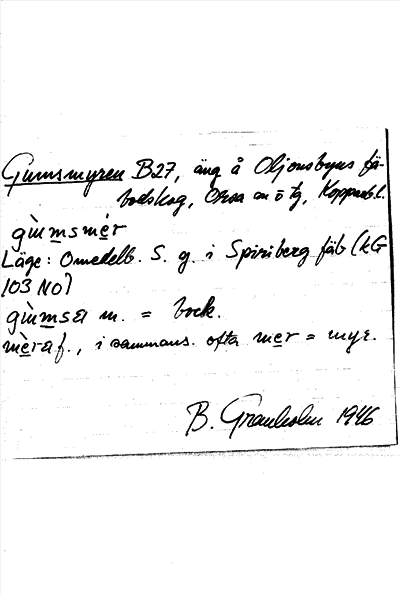 Gumsmyren B27, äng å Oljonsbyns fä-
bodskog, Orsa sn ö tg, Kopparb.l.
gùmsmèr
Läge: Omedelb. S. g. i Spiriberg fäb (kG
103 NO)
gùmsa m. = bock.
mèra f., i sammans. ofta mer = myr.
B. Granholm 1946